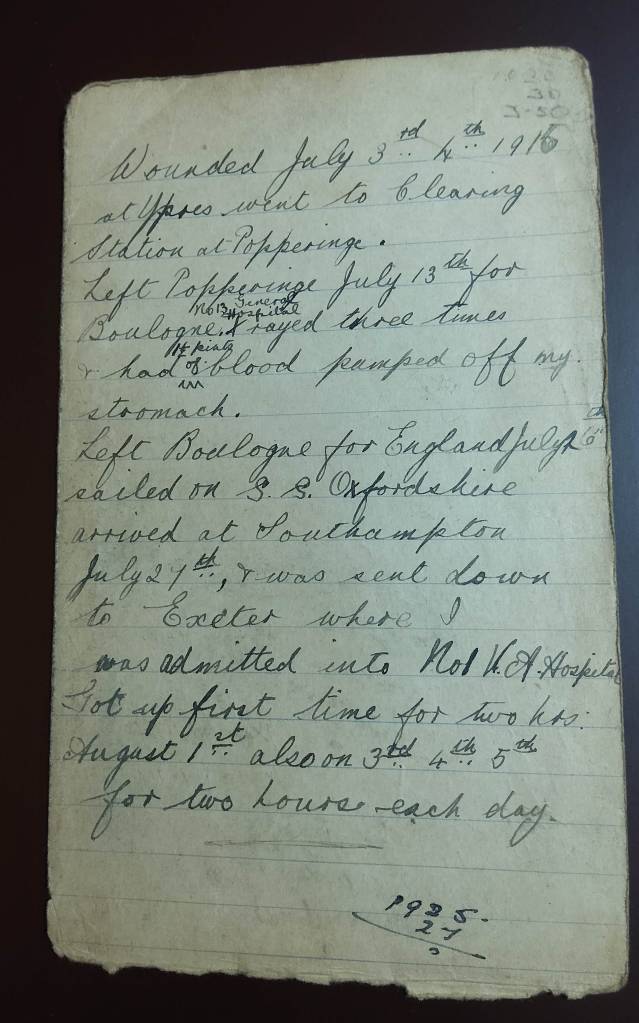 1920
30
Wounded July 3rd 4th 1916
at Ypres went to Clearing
Station at Popperinge.
Left Popperinge July 13th for
No 13 General
Hospital
Boulogne. X rayed three times
pints
& had of blood pumped off my
stoomach.
Left Boulogne for England July 26th
sailed on S. S. Oxfordshire
arrived at Southampton
July 27th, & was sent down
to Exeter where I
was admitted into No 1 V. A. Hospital
Got up first time for two hrs.
August 1st also on 3rd 4th 5th
for two hours each day.
1935-
27